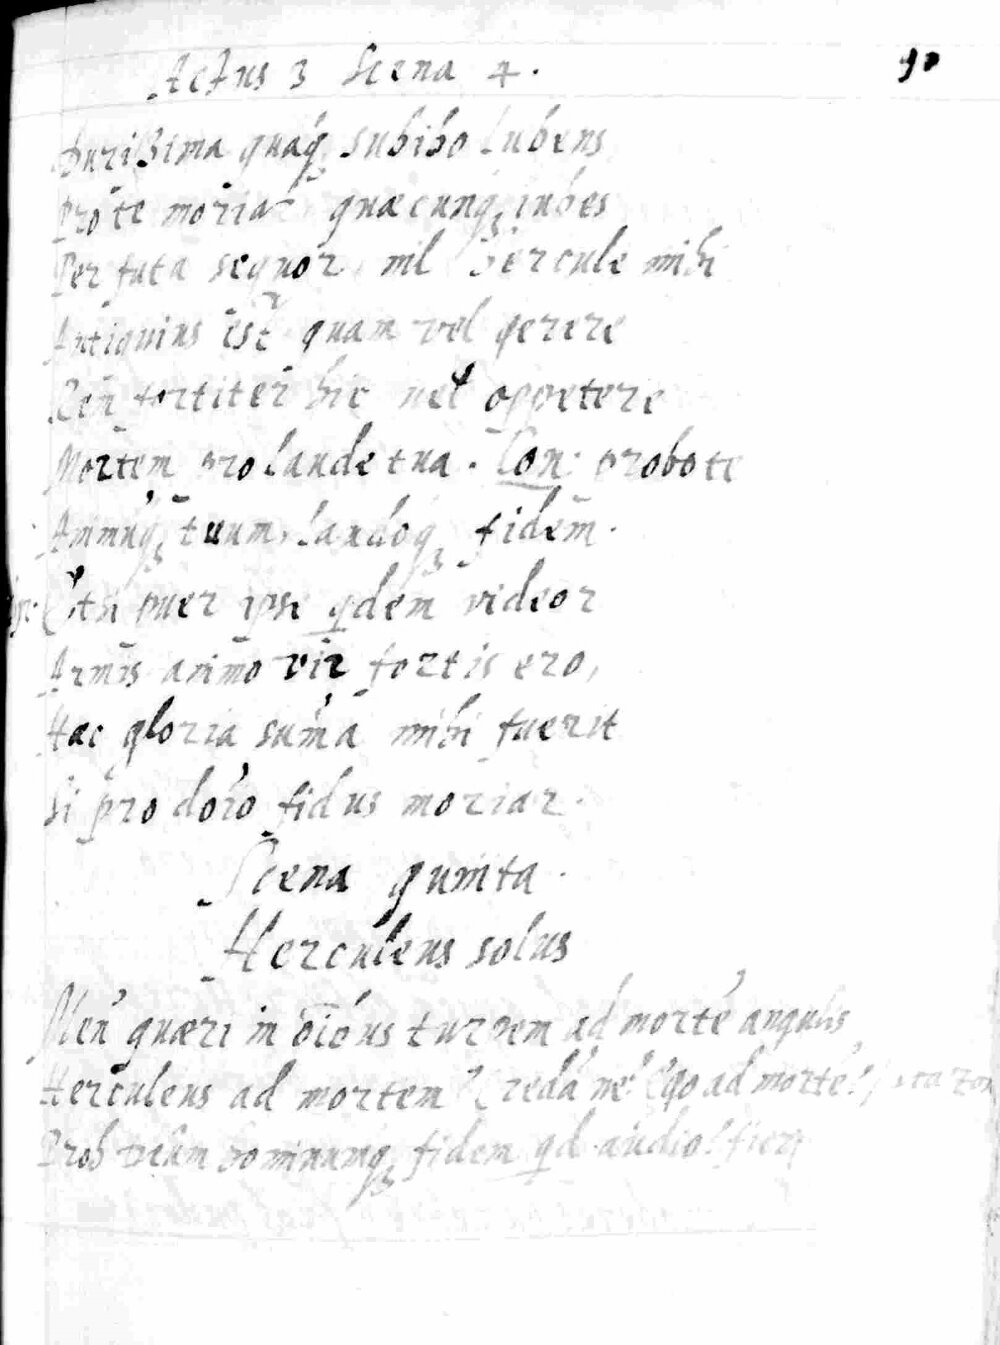 Actus 3 Scena 4. 90
Durißima quaq₃ subibo lubens
Pro te moriar quæcunq₃ iubes
Per tuta sequor, nil Hercule mihi
Antiquius est quam vel gerere
Rem fortiter hic vel oppetere
Mortem pro laude tua. Con: probo te
Animuq₃ tuum, laudoq₃ fidem.
Etsi puer ipse qdem videor
Armis animo vir fortis ero,
Hæc gloria sum̃a mihi fuerit
Si pro dom̃o fidus moriar.
Scena quinta.
Herculeus solus
Men' quæri in oĩbus turpem ad morte angulis
Herculeus ad mortem? Credã ne? Ego ad morte?
Proh deũm hominumq₃ fidem qd audio! fieri